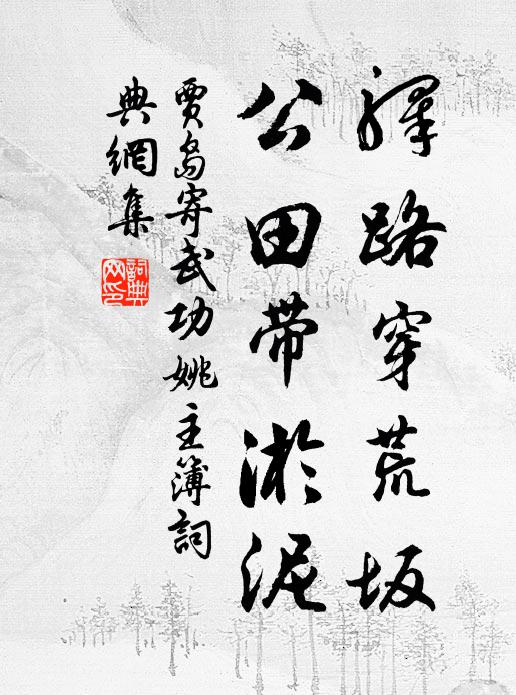 驛路穿荒坂
公田带淤泥
賈島寄武功姚主簿詞
典網集
詞典
网印